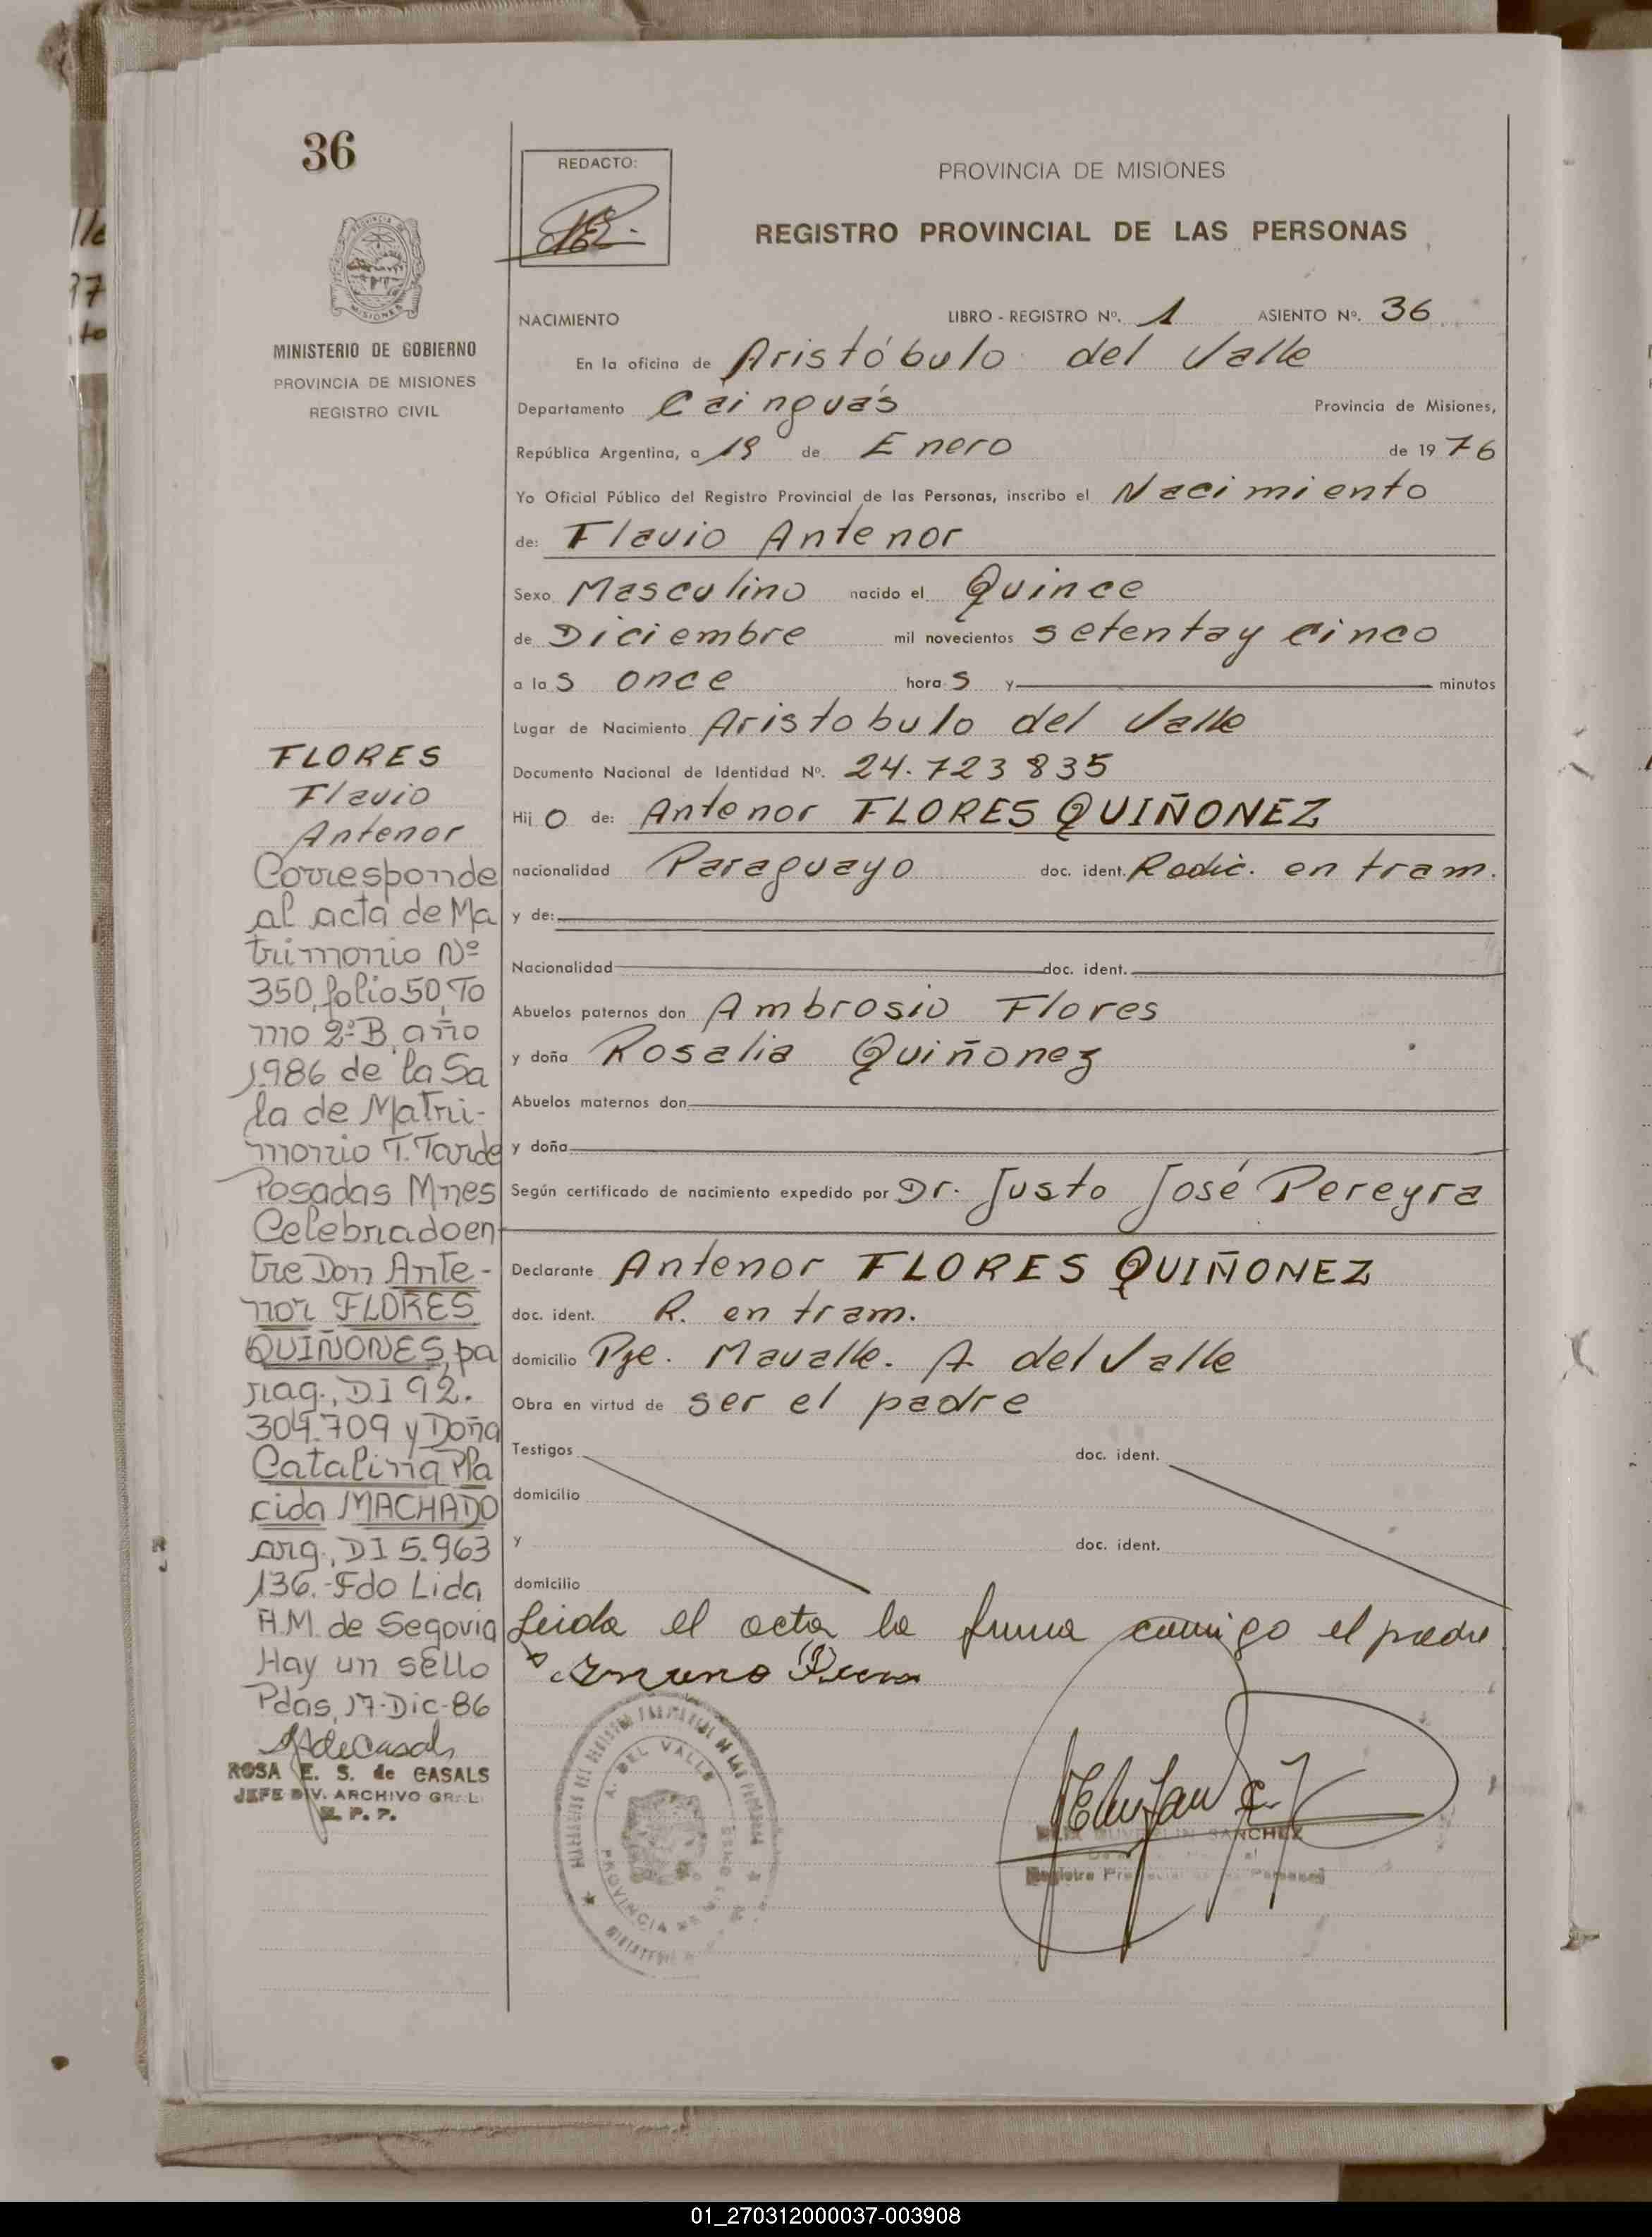 36
MINISTERIO DE GOBIERNO
PROVINCIA DE MISIONES
REGISTRO CIVIL
REDACTO:
PROVINCIA DE MISIONES
REGISTRO PROVINCIAL DE LAS PERSONAS
NACIMIENTO LIBRO - REGISTRO Nº. 1 ASIENTO Nº. 36
En la oficina de Aristóbulo del Valle
Departamento Cainguás Provincia de Misiones,
República Argentina, a 19 de Enero de 1976
Yo Oficial Público del Registro Provincial de las Personas, inscribo el Nacimiento
de: Flavio Antenor
Sexo Masculino nacido el Quince
de Diciembre mil novecientos setenta y cinco
a las once horas y minutos
Lugar de Nacimiento Aristobulo del Valle
Documento Nacional de Identidad Nº. 24.723835
Hijo de: Antenor FLORES QUIÑONEZ
nacionalidad Paraguayo doc. ident. Radic. en tram.
y de:
Nacionalidad doc. ident.
Abuelos paternos don Ambrosio Flores
y doña Rosalia Quiñonez
Abuelos maternos don
y doña
Según certificado de nacimiento expedido por Dr. Justo José Pereyra
Declarante Antenor FLORES QUIÑONEZ
doc. ident. R. en tram.
domicilio Pje. Mavalle. A del Valle
Obra en virtud de ser el padre
Testigos doc. ident.
domicilio
y doc. ident.
domicilio
Leida el acta la firma conmigo el padre
FLORES
Flavio
Antenor
Corresponde
al acta de Ma
trimonio Nº
350, folio 50, To
mo 2º B, año
1986 de la Sa
la de Matri-
monio T. Tarde
Posadas Mnes
Celebrado en-
tre Don Ante-
nor FLORES
QUIÑONES, pa
rag., D.I 92.
304.709 y Doña
Catalina Pla
cida MACHADO
arg., DI 5.963
136.- Fdo Lida
A.M. de Segovia
Hay un sello
Pdas, 17-Dic-86
ROSA E. S. de CASALS
JEFE DIV. ARCHIVO GRAL
R. P. P.
A. DEL VALLE
PROVINCIA DE
SANCHEZ
01_270312000037-003908